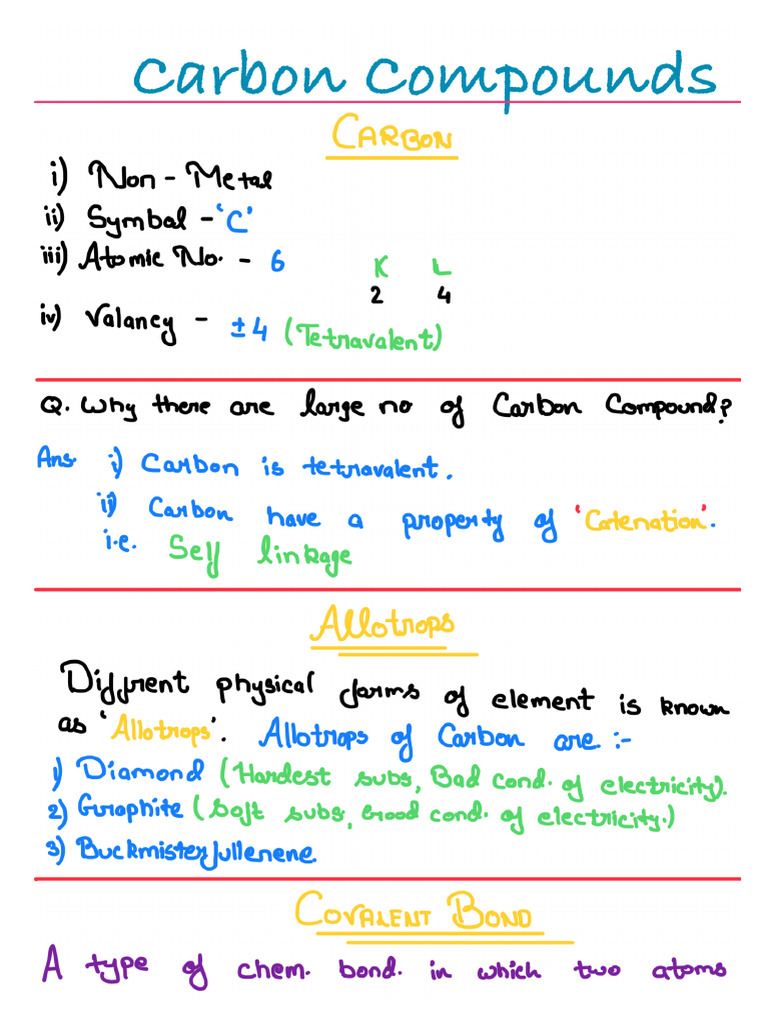 Carbon Compounds
CARBON
i) Non - Metal
ii) Symbol - 'C'
iii) Atomic No. - 6
K L
2 4
iv) Valancy - ±4 (Tetravalent)
Q. Why there are large no of Carbon Compound?
Ans. i) Carbon is tetravalent.
ii) Carbon have a property of 'Catenation'.
i.e. Self linkage
Allotrops
Diffrent physical forms of element is known
as 'Allotrops'. Allotrops of Carbon are :-
1) Diamond (Hardest subs, Bad cond. of electricity).
2) Graphite (Soft subs, Good cond. of electricity.)
3) Buckmisterfullenene.
COVALENT BOND
A type of chem. bond. in which two atoms